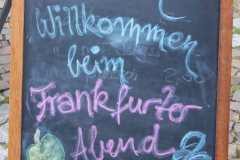 Willkommen
beim
Frankfurter
Abend